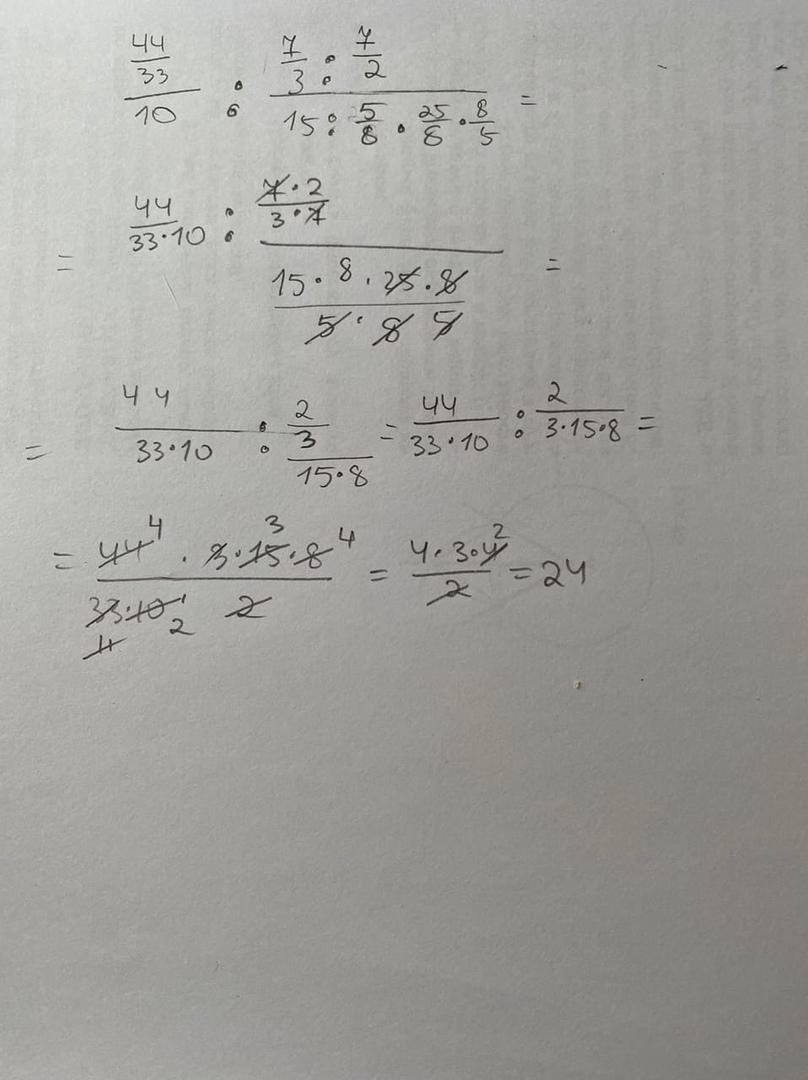 44/33 / 10 : 7/3 : 7/2 / 15 : 5/8 · 25/8 · 8/5 =
= 44 / 33·10 : 7·2 / 3·7 / 15·8·25·8 / 5·8 5 =
= 44 / 33·10 : 2/3 / 15·8 = 44 / 33·10 : 2 / 3·15·8 =
= 44 4 · 3·15 3·8 4 / 33·10 11 2 2 = 4·3·4 2 / 2 = 24